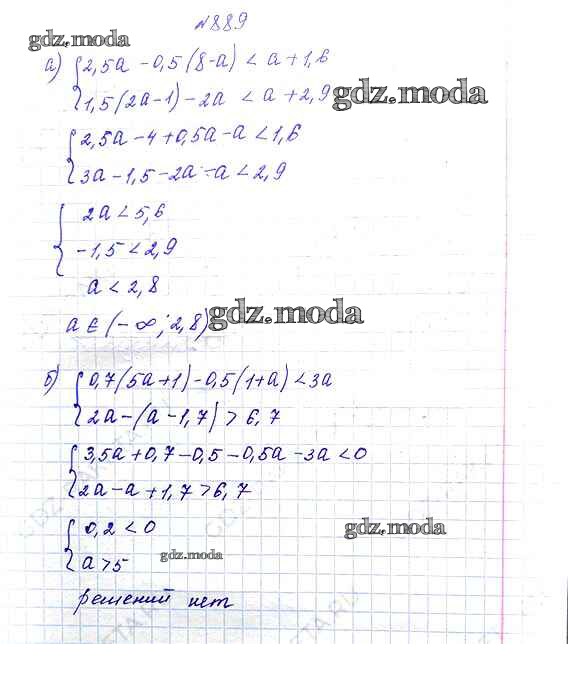 №889
gdz.moda
а) { 2,5a - 0,5(8-a) < a + 1,6
1,5(2a-1) - 2a < a + 2,9
gdz.moda
{ 2,5a - 4 + 0,5a - a < 1,6
3a - 1,5 - 2a - a < 2,9
{ 2a < 5,6
-1,5 < 2,9
a < 2,8
a ∈ (-∞; 2,8)
gdz.moda
б) { 0,7(5a+1) - 0,5(1+a) < 3a
2a - (a - 1,7) > 6,7
{ 3,5a + 0,7 - 0,5 - 0,5a - 3a < 0
2a - a + 1,7 > 6,7
{ 0,2 < 0
gdz.moda
a > 5
gdz.moda
решений нет